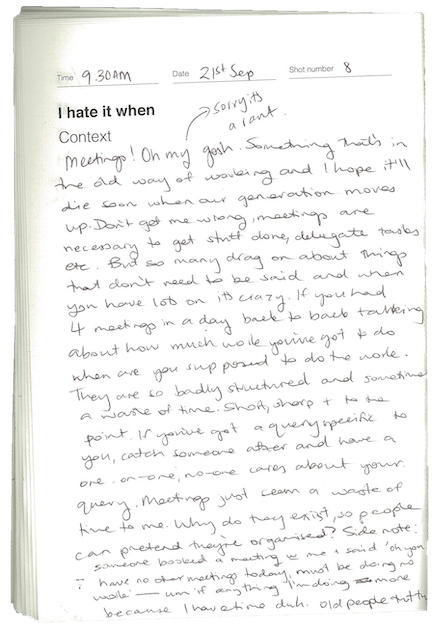 Time 9.30AM Date 21st Sep Shot number 8
I hate it when
→ sorry its
a rant.
Context
Meetings! Oh my gosh. Something that's in
the old way of working and I hope it'll
die soon when our generation moves
up. Don't get me wrong, meetings are
necessary to get stuff done, delegate tasks
etc. But so many drag on about things
that don't need to be said and when
you have lots on its crazy. If you had
4 meetings in a day back to back talking
about how much work you've got to do
when are you supposed to do the work.
They are so badly structured and sometimes
a waste of time. Short, sharp + to the
point. If you've got a query specific to
you, catch someone after and have a
one-on-one, no-one cares about your
query. Meetings just seem a waste of
time to me. Why do they exist, so people
can pretend they're organised? Side note:
someone booked a meeting w me + said 'oh you
have no other meetings today, must be doing no
work' — um if anything I'm doing more
because I have time duh. Old people